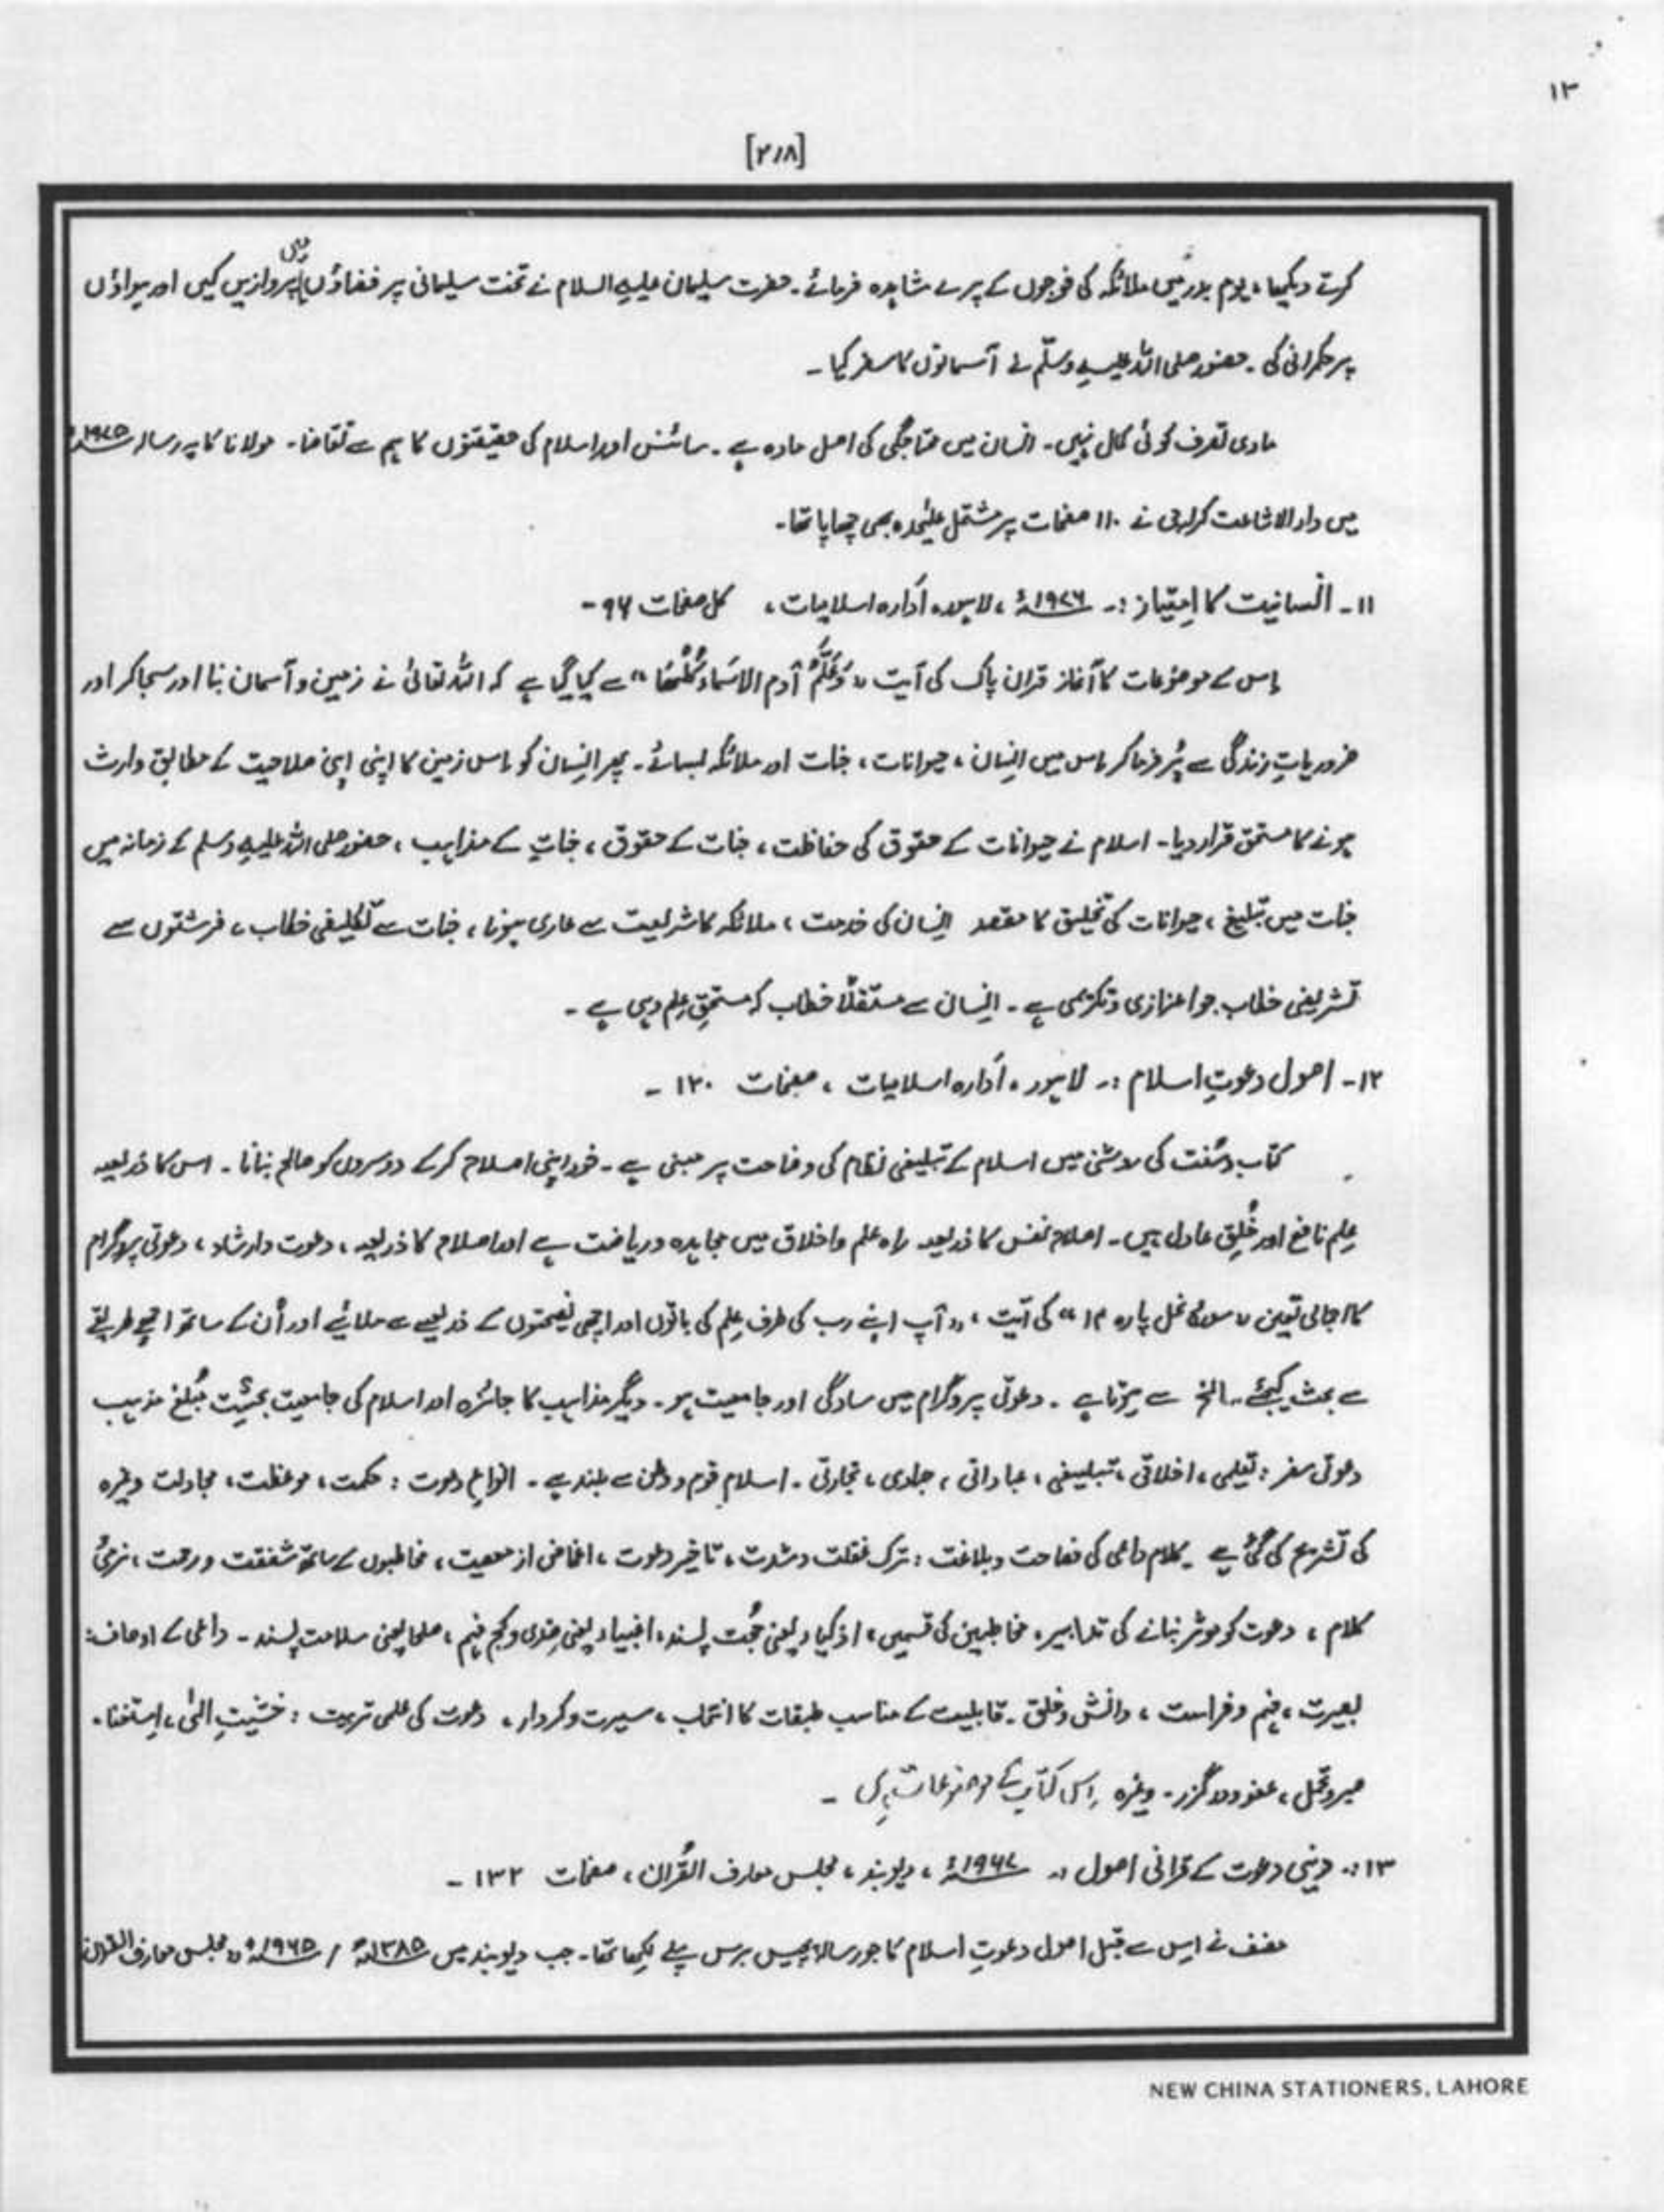 ۱۳
[۲۱۸]
کرتے دیکھا، یوم بدر میں ملائکہ کی فوجوں کے پرے مشاہدہ فرمائے۔ حضرت سلیمان علیہ السلام نے تخت سلیمانی پر فضاؤں میں پروازیں کیں اور ہواؤں
پر حکمرانی کی۔ حضور صلی اللہ علیہ وسلّم نے آسمانوں کا سفر کیا ۔
مادی تصرف کوئی کمال نہیں۔ انسان میں محتاجگی کی اصل مادہ ہے ۔ سائنس اور اسلام کی حقیقتوں کا ہم سے تقاضا۔ مولانا کا یہ رسالہ ۱۹۷۵ء
میں دارالاشاعت کراچی نے ۱۱۰ صفحات پر مشتمل علیٰحدہ بھی چھاپا تھا۔
۱۱۔ انسانیت کا اِمتیاز :۔ ۱۹۷۶ء ، لاہور، اَدارہ اسلامیات ، کل صفحات ۹۶ -
اِس کے موضوعات کا آغاز قران پاک کی آیت ،، وَعَلَّمَ آدم الاسَماء کُلّھَا ،، سے کیا گیا ہے کہ اللہ تعالیٰ نے زمین و آسمان بنا اور سجا کر اور
ضروریاتِ زندگی سے پُر فرما کر اِس میں اِنسان ، حیوانات ، جنات اور ملائکہ بسائے۔ پھر اِنسان کو اِس زمین کا اپنی اپنی صلاحیت کے مطابق وارث
ہونے کا مستحق قرار دیا۔ اسلام نے حیوانات کے حقوق کی حفاظت ، جنات کے حقوق ، جناتِ کے مذاہب ، حضور صلی اللہ علیہ وسلم کے زمانہ میں
جنات میں تبلیغ ، حیوانات کی تخلیق کا مقصد اِنسان کی خدمت ، ملائکہ کا شریعت سے عاری ہونا ، جنات سے تکلیفی خطاب ، فرشتوں سے
تشریفی خطاب جو اعزازی و تکریمی ہے ۔ اِنسان سے مستقلاً خطاب کہ مستحقِ عِلم وہی ہے ۔
۱۲۔ اصول دعوتِ اسلام :۔ لاہور ، اَدارہ اسلامیات ، صفحات ۱۲۰ ۔
کتاب و سُنت کی روشنی میں اسلام کے تبلیغی نظام کی وضاحت پر مبنی ہے ۔ خود اپنی اصلاح کرکے دوسروں کو صالح بنانا ۔ اس کا ذریعہ
عِلم نافع اور خُلِق عادل ہیں۔ اصلاح نفس کا ذریعہ راہ علم و اخلاق میں مجاہدہ و ریاضت ہے اور اصلاح کا ذریعہ ، دعوت و ارشاد ، دعوتی پروگرام
کا اجمالی تعین ،، سورہ نحل پارہ ۱۴ ،، کی آیت ، ،، آپ اپنے رب کی طرف عِلم کی باتوں اور اچھی نصیحتوں کے ذریعے سے ملائیے اور اُن کے ساتھ اچھے طریقے
سے بحث کیجئے ۔ الخ سے ہوتا ہے ۔ دعوتی پروگرام میں سادگی اور جامعیت ہو ۔ دیگر مذاہب کا جائزہ اور اسلام کی جامعیت بحیثیت مُبلغ مذہب
دعوتی سفر : تعلیمی ، اخلاقی ، تبلیغی ، عباداتی ، جہادی ، تجارتی ۔ اسلام قوم و وطن سے بلند ہے ۔ انواعِ دعوت : حکمت ، موعظت ، مجادلت وغیرہ
کی تشریح کی گئی ہے ۔ کلام داعی کی فصاحت و بلاغت : ترک غفلت و شدت ، تاخیر دعوت ، اغماض از معصیت ، مخاطبوں کے ساتھ شفقت و رحمت ، نرمیٔ
کلام ، دعوت کو موثر بنانے کی تدابیر ، مخاطبین کی قسمیں ، اذکیاء یعنی حُجت پسند ، اغبیاء یعنی ضِدی و کج فہم ، صلحا یعنی سلامت پسند ۔ داعی کے اوصاف :
بصیرت ، فہم و فراست ، دانش و خلق ۔ قابلیت کے مناسب طبقات کا انتخاب ، سیرت و کردار ، دعوت کی عملی تربیت : خشیتِ الٰہی ، اِستغنا ،
صبر و تحمل ، عفو و درگزر ۔ وغیرہ اِس کتاب کے موضوعات ہیں ۔
۱۳ :۔ دینی دعوت کے قرانی اصول :۔ ۱۹۶۷ء ، دیوبند ، مجلس معارف القُران ، صفحات ۱۳۲ ۔
مصنف نے اِس سے قبل اصول دعوتِ اسلام کا جو رسالہ پچیس برس پہلے لِکھا تھا ۔ جب دیوبند میں ۱۳۸۵ھ / ۱۹۶۵ء ،، مجلس معارف القران
NEW CHINA STATIONERS, LAHORE